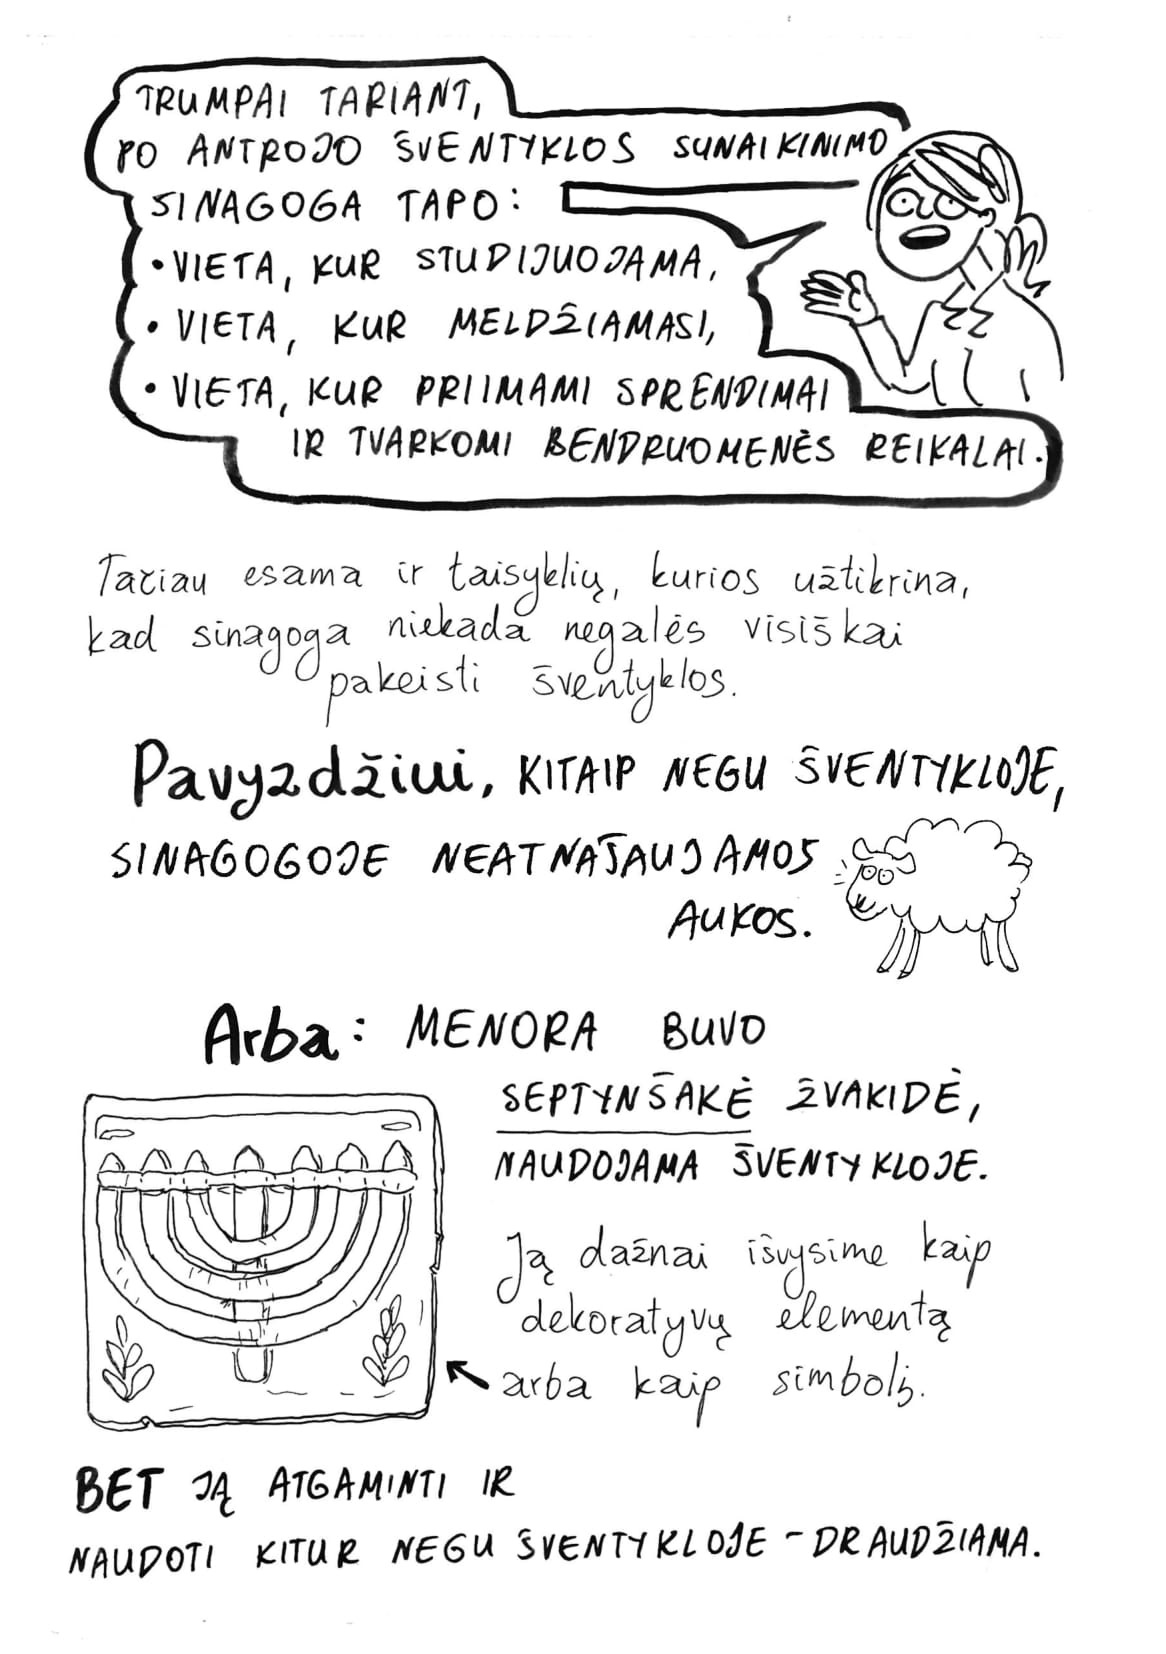 TRUMPAI TARIANT,
PO ANTROJO ŠVENTYKLOS SUNAIKINIMO
SINAGOGA TAPO:
• VIETA, KUR STUDIJUOJAMA,
• VIETA, KUR MELDŽIAMASI,
• VIETA, KUR PRIIMAMI SPRENDIMAI
IR TVARKOMI BENDRUOMENĖS REIKALAI.
Tačiau esama ir taisyklių, kurios užtikrina,
kad sinagoga niekada negalės visiškai
pakeisti šventyklos.
Pavyzdžiui, KITAIP NEGU ŠVENTYKLOJE,
SINAGOGOJE NEATNAŠAUJAMOS
AUKOS.
Arba: MENORA BUVO
SEPTYNŠAKĖ ŽVAKIDĖ,
NAUDOJAMA ŠVENTYKLOJE.
Ją dažnai išvysime kaip
dekoratyvų elementą
arba kaip simbolį.
BET JĄ ATGAMINTI IR
NAUDOTI KITUR NEGU ŠVENTYKLOJE – DRAUDŽIAMA.